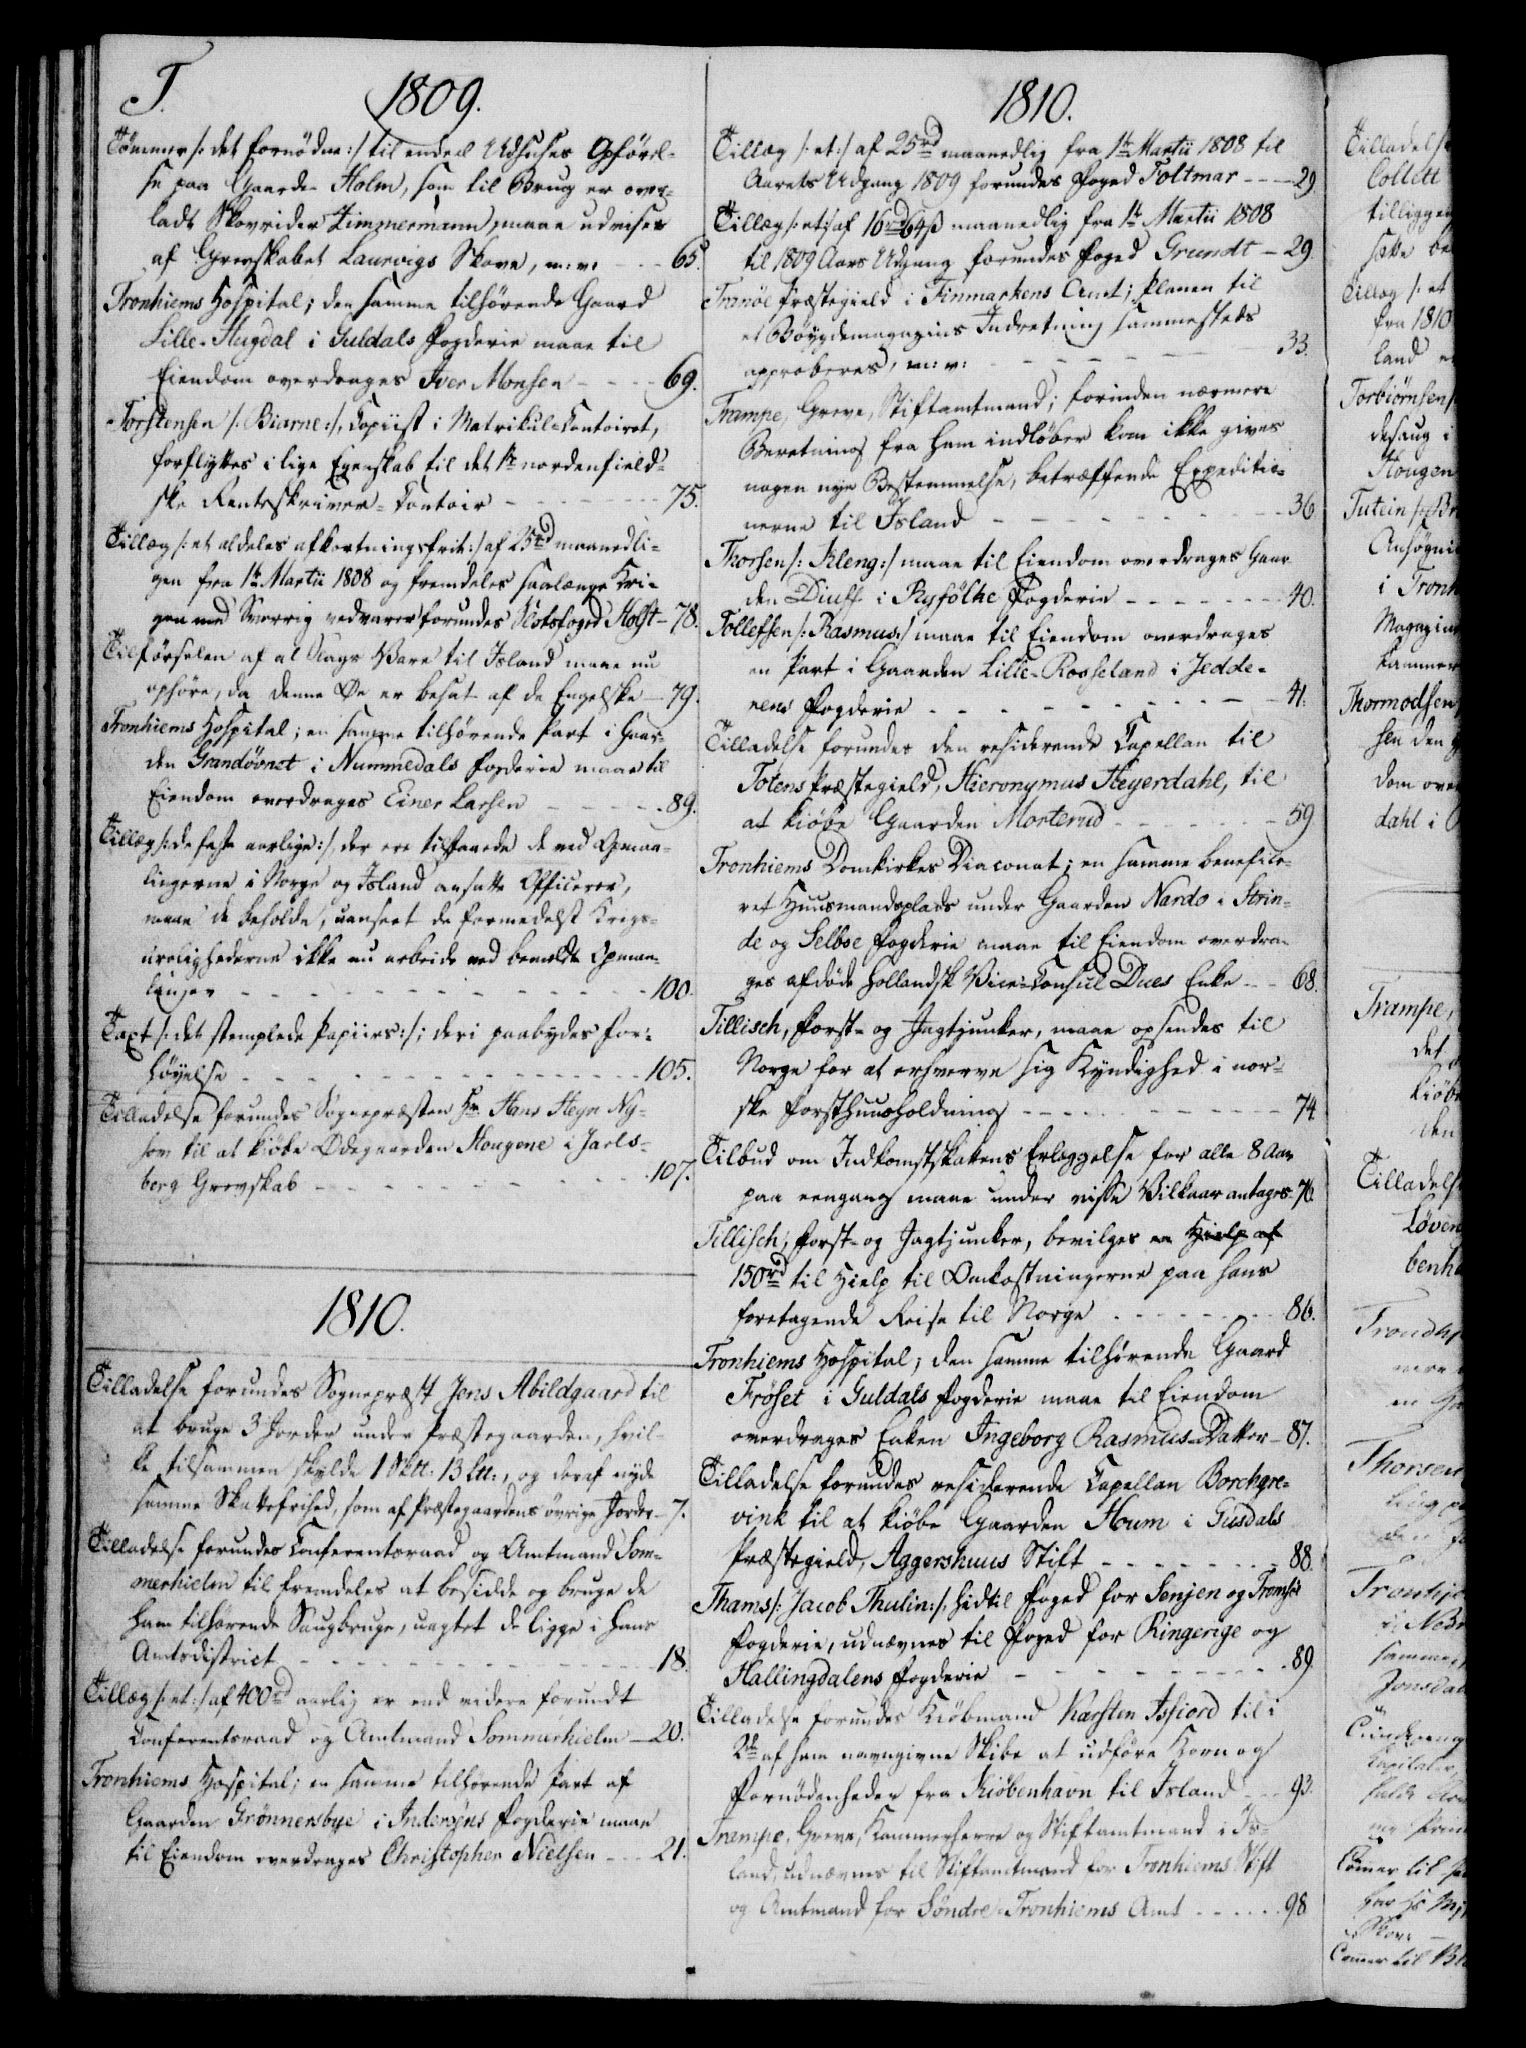 T.
1809.
Tömmer /: det fornödne :/ til endeel Udhuses Opförel-
se paa Gaarde Holm, som til Brug er over-
ladt Skovrider Zimmermann, maae udvises
af Grevskabet Laurvigs Skove, m: v: - - - 65.
Tronhiems Hospital; den samme tilhørende Gaard
Lille-Hugdal i Guldals Fogderie maae til
Eiendom overdrages Iver Monsen - - - - 69.
Torstensen /: Biarne :/, Copiist i Matrikul-Contoiret,
forflyttes i lige Egenskab til det 1te nordenfield-
ske Renteskriver-Contoir - - - - - - 75.
Tillæg /: et aldeles afkortningsfrit :/ af 25rd maanedli-
gen fra 1te Martii 1808 og fremdeles saalænge Kri-
gen med Sverrig vedvarer forundes Slotsfoged Holst - 78.
Tilførselen af al Slags Vare til Island maae nu
ophøre, da denne Øe er besat af de Engelske - 79.
Tronhiems Hospital; en samme tilhørende Part i Gaar-
den Grandövnet i Nummedals Fogderie maae til
Eiendom overdrages Einer Larsen - - - - - 89.
Tillæg /: de faste aarlige :/, der ere tilstaaede de ved Opmaa-
lingerne i Norge og Island ansatte Officerer,
maae de beholde, uanseet de formedelst Krigs-
urolighederne ikke nu arbeide ved bemeldte Opmaa-
linger - - - - - - - - - - - 100.
Taxt /: det stemplede Papiirs :/; deri paabydes for-
höyelse - - - - - - - - - - - 105.
Tilladelse forundes Sognepræsten Hr. Hans Heyn Ny-
hom til at kiöbe Ödegaarden Hougene i Jarls-
berg Grevskab - - - - - - - - - 107.
1810.
Tilladelse forundes Sognepræst Jens Abildgaard til
at bruge 3 Jorder under Præstegaarden, hvil-
ke tilsammen skylde 1 Sktt: 13 ltt:, og deraf nyde
samme Skattefrihed, som af Præstegaardens övrige Jorder - 7.
Tilladelse forundes Conferentsraad og Amtmand Som-
merhielm til fremdeles at besidde og bruge de
ham tilhörende Saugbruge, uagtet de ligge i hans
Amtsdistrict - - - - - - - - - - - 18.
Tillæg /: et :/ af 400rd aarlig er end videre forundt
Conferentsraad og Amtmand Sommerhielm - 20.
Tronhiems Hospital; en samme tilhörende Part af
Gaarden Grönnersbye i Inderöens Fogderie maae
til Eiendom overdrages Christopher Nielsen - - - 21.
1810.
Tillæg /: et :/ af 25rd maanedlig fra 1te Martii 1808 til
Aarets Udgang 1809 forundes Foged Foltmar - - - 29
Tillæg /: et :/ af 16rd 64ß maanedlig fra 1te Martii 1808
til 1809 Aars Udgang forundes Foged Grundt - 29.
Tranöe Præstegield i Finmarkens Amt; Planen til
et Böygdemagazins Indretning sammesteds
approberes, m: v: - - - - - - - 33.
Trampe, Greve, Stiftamtmand; forinden nærmere
Beretning fra ham indløber kan ikke gives
nogen nye Bestemmelse, betræffende Expeditio-
nerne til Island - - - - - - - - - 36
Thorsen /: Kleng :/ maae til Eiendom overdrages Gaar-
den Diuff i Ryfölke Fogderie - - - - - - - 40.
Tollefsen /: Rasmus :/ maae til Eiendom overdrages
en Part i Gaarden Lille-Rosseland i Jedde-
rens Fogderie - - - - - - - - - - - 41.
Tilladelse forundes den residerende Capellan til
Totens Præstegield, Hieronymus Heyerdahl, til
at kiöbe Gaarden Morterud - - - - - - 59
Tronhiems Domkirkes Diaconat; en samme benefice-
ret Huusmandsplads under Gaarden Nardo i Strin-
de og Selboe Fogderie maae til Eiendom overdra-
ges afdöde Hollandsk Vice-Consul Dues Enke - - 68.
Tillisch, Forst- og Jagtjunker, maae opsendes til
Norge for at erhverve sig Kyndighed i nor-
ske Forsthuusholdning - - - - - - - 74
Tilbud om Indkomstskattens Erlæggelse for alle 8 Aar
paa eengang maae under visse Vilkaar antages 76.
Tillisch, Forst- og Jagtjunker, bevilges en Hielp af
150rd til Hielp til Omkostningerne paa hans
foretagende Reise til Norge - - - - - - 86.
Tronhiems Hospital; den samme tilhörende Gaard
Fröset i Guldals Fogderie maae til Eiendom
overdrages Enken Ingeborg Rasmus-Datter - 87.
Tilladelse forundes residerende Capellan Borchgre-
vink til at kiöbe Gaarden Houm i Gusdals
Præstegield, Aggershuus Stift - - - - - - 88.
Thams /: Jacob Thulin :/, hidtil Foged for Senjen og Tromsöe
Fogderie, udnævnes til Foged for Ringerige og
Hallingdalens Fogderie - - - - - - - - 89.
Tilladelse forundes Kiöbmand Karsten Isfiord til i
2de af ham navngivne Skibe at udføre Korn og
Fornödenheder fra Kiöbenhavn til Island - - - 93.
Trampe, Greve, Kammerherre og Stiftamtmand i Is-
land, udnævnes til Stiftamtmand for Tronhiems Stift
og Amtmand for Söndre-Tronhiems Amt - - - - - 98
Tilladelse
Collett
tilligge
Tillæg /: et
fra 1810
land
Torbiörnsen
Hougen
Tutein /: Br
Ansögni
i Tronh
Magazin
Kammer
Thormodsen
sen den
dom over
dahl i
Trampe,
det
kiöbe
den
Tilladelse
Löven
benha
Trondhj
Thorsen
Tronhje
Jonsda